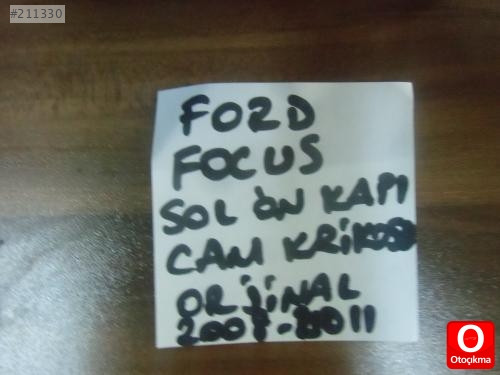 #211330
FORD
FOCUS
SOL ÖN KAPI
CAM KRİKOSU
ORJİNAL
2007-2011
Otoçıkma